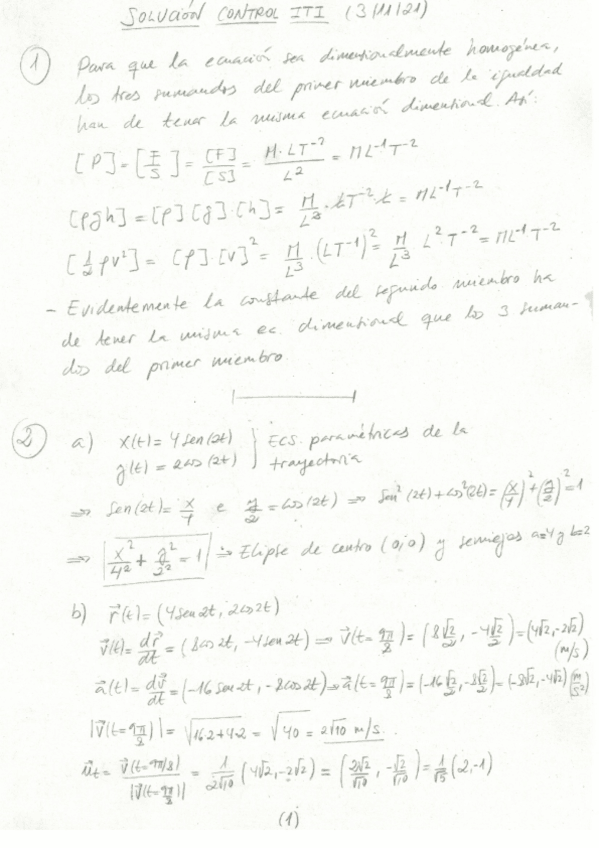 SOLUCIÓN CONTROL ITI (3/11/21)
1 Para que la ecuación sea dimensionalmente homogénea,
los tres sumandos del primer miembro de la igualdad
han de tener la misma ecuación dimensional. Así:
[P] = [F/S] = [F]/[S] = M·LT⁻²/L² = ML⁻¹T⁻²
[ρgh] = [ρ][g]·[h] = M/L³·LT⁻²·L = ML⁻¹T⁻²
[½ρv²] = [ρ]·[v]² = M/L³·(LT⁻¹)² = M/L³ L²T⁻² = ML⁻¹T⁻²
- Evidentemente la constante del segundo miembro ha
de tener la misma ec. dimensional que los 3 suman-
dos del primer miembro.
2 a) x(t) = 4 sen(2t) } ECS. paramétricas de la
y(t) = 2cos(2t) trayectoria
⇒ sen(2t) = x/4 e y/2 = cos(2t) ⇒ sen²(2t) + cos²(2t) = (x/4)² + (y/2)² = 1
⇒ x²/4² + y²/2² = 1 ⇒ Elipse de centro (0,0) y semiejes a=4 y b=2
b) r⃗(t) = (4 sen 2t, 2cos 2t)
v⃗(t) = dr⃗/dt = (8cos 2t, -4sen 2t) ⇒ v⃗(t=9π/8) = (8√2/2, -4√2/2) = (4√2, -2√2)
(m/s)
a⃗(t) = dv⃗/dt = (-16 sen 2t, -8cos 2t) ⇒ a⃗(t=9π/8) = (-16√2/2, -8√2/2) = (-8√2, -4√2) (m/s²)
|v⃗(t=9π/8)| = √(16·2+4·2) = √40 = 2√10 m/s.
u⃗t = v⃗(t=9π/8)/|v⃗(t=9π/8)| = 1/2√10 (4√2, -2√2) = (2√2/√10, -√2/√10) = 1/√5 (2,-1)
(1)